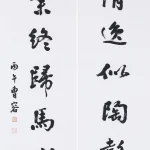 逸似陶彭
終歸馬
丙午曹容